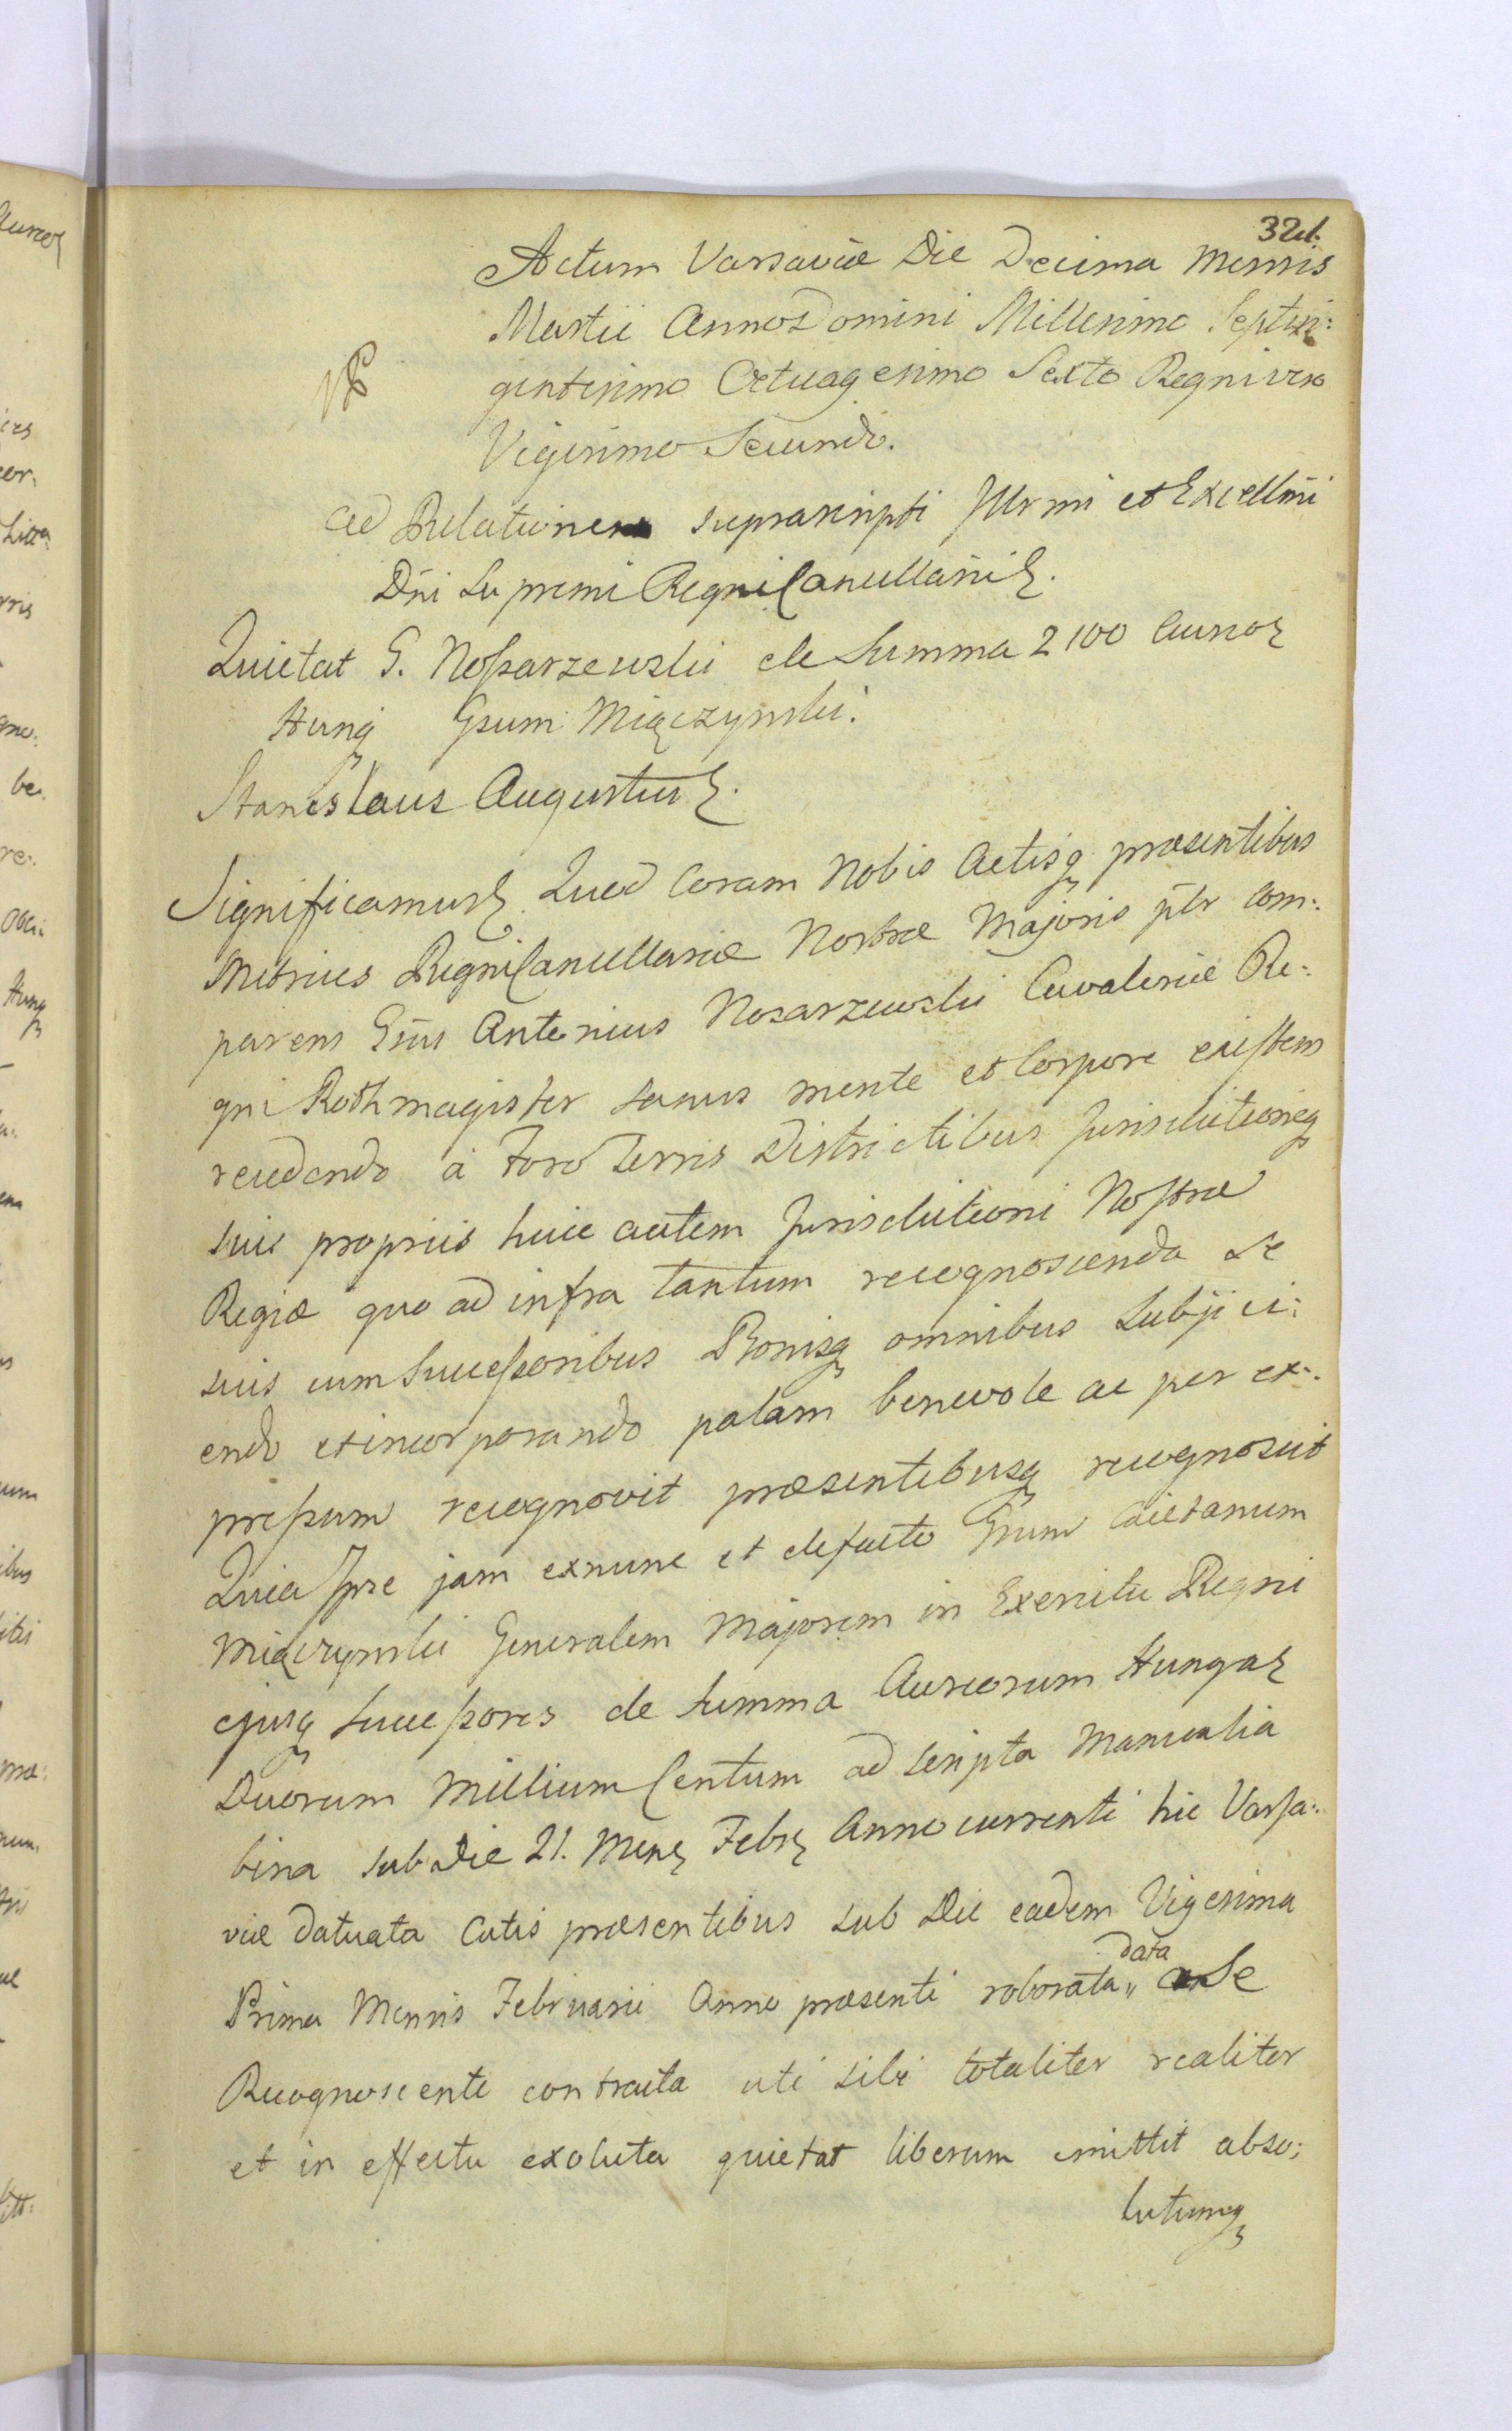 321.
Actum Varsaviæ Die Decima Mensis
Martii Anno Domini Millesimo Septin:
gentesimo Octuagesimo Sexto Regni vero
Vigesimo Secundo.
ad Relationem suprascripti Illrmi et Excellmi
Dñi Supremi Regni Cancellarii etc.
Quietat G. Nossarzewski de Summa 2100 Aureor
Hung Gsum Miączynski.
Stanislaus Augustus etc.
Significamus etc. Quod Coram Nobis Actisq præsentibus
Metrices Regni Cancellariæ Nostræ Majoris pltr Com:
parens Gsus Antonius Nosarzewski Cavaleriæ Re:
gni Rothmagister sanus mente et Corpore existens
recedendo á Foro Terris Districtibus Jurisdictioneq
suis propriis huic autem Jurisdictioni Nostræ
Regiæ quo ad infra tantum recognoscenda Se
suis cum Successoribus Bonisq omnibus Subjici:
endo et incorporando palam benevole ac per ex:
pressum recognovit præsentibusq recognoscit
Quia Ipse jam exnunc et defacto Gsum Caietanum
Miączynski Generalem Majorem in Exercitu Regni
ejusq Successores de Summa Aureorum Hungar
Duorum Millium Centum ad Scripta Manualia
bina sub Die 21. Mens Febr Anno currenti hic Varsa:
viæ datuata Actis præsentibus sub Die eadem Vigesima
Prima Mensis Februarii Anno præsenti roborata „ data a Se
Recognoscente contracta uti sibi totaliter realiter
et in effectu exoluta quietat liberum emittit abso:
lutumq